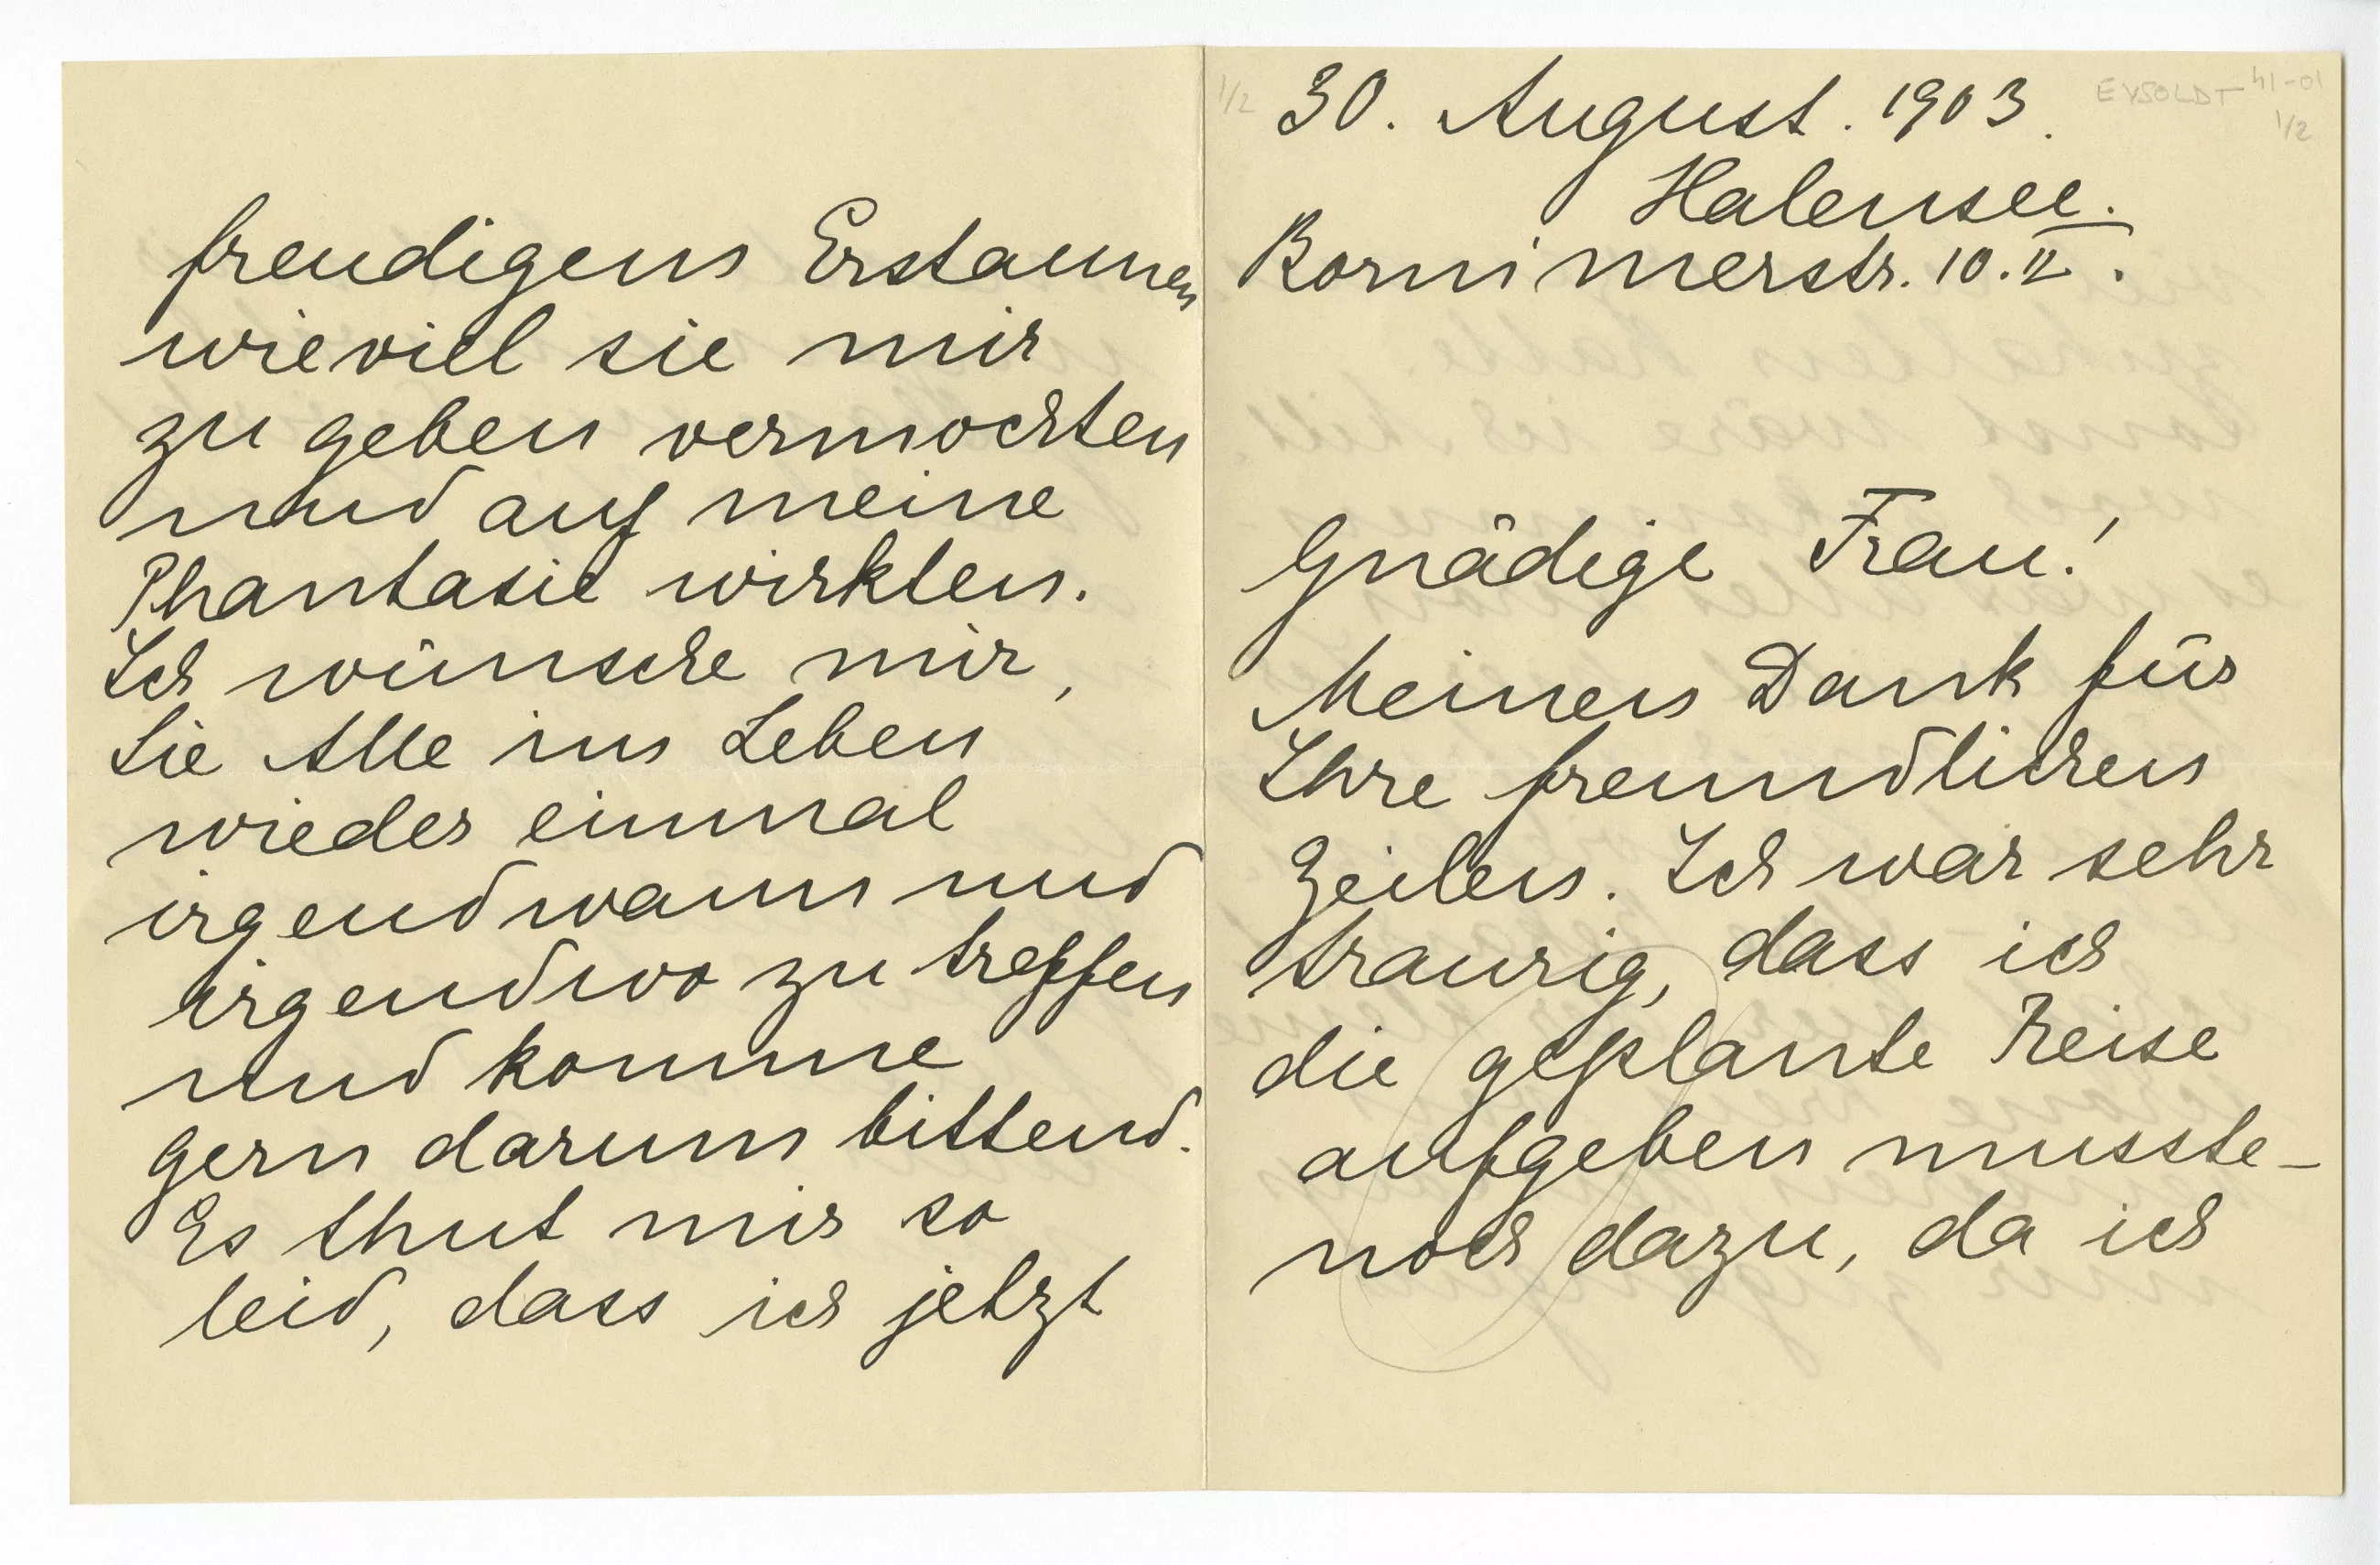 30. August. 1903.
Halensee.
Bornimerstr. 10. II.
EYSOLDT 41-01
1/2
1/2
Gnädige Frau!
Meinen Dank für
Ihre freundlichen
Zeilen. Ich war sehr
traurig, dass ich
die geplante Reise
aufgeben musste –
noch dazu, da ich
freudigem Erstaunen
wieviel sie mir
zu geben vermochten
und auf meine
Phantasie wirkten.
Ich wünsche mir,
Sie Alle im Leben
wieder einmal
irgendwann und
irgendwo zu treffen
und komme
gern darum bittend.
Es thut mir so
leid, dass ich jetzt